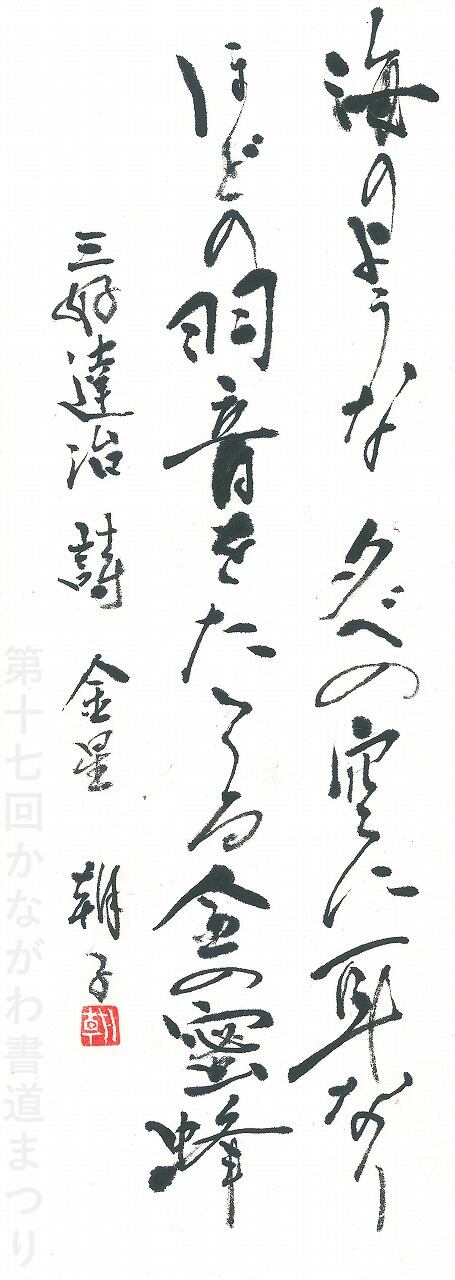 海のような 夕べの空に 耳なり
ほどの羽音をたてる金の蜜蜂
三好達治 詩 金星 朝子
朝
第十七回かながわ書道まつり